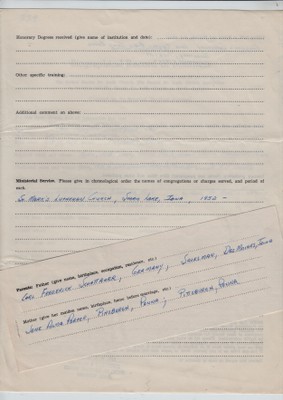 Honorary Degrees received (give name of institution and date):
Other specific training:
Additional comment on above:
Ministerial Service. Please give in chronological order the names of congregations or charges served, and period of
work.
St. Mark's Lutheran Church, Storm Lake, Iowa 1952 -
Parents: Father (give name, birthplace, occupation, residence, etc.)
Carl Frederick Germany, Salesman, Des Moines, Iowa
Mother (give her maiden name, birthplace, home before marriage, etc.)
Jane Pittsburgh, Penna, Pittsburgh, Penna